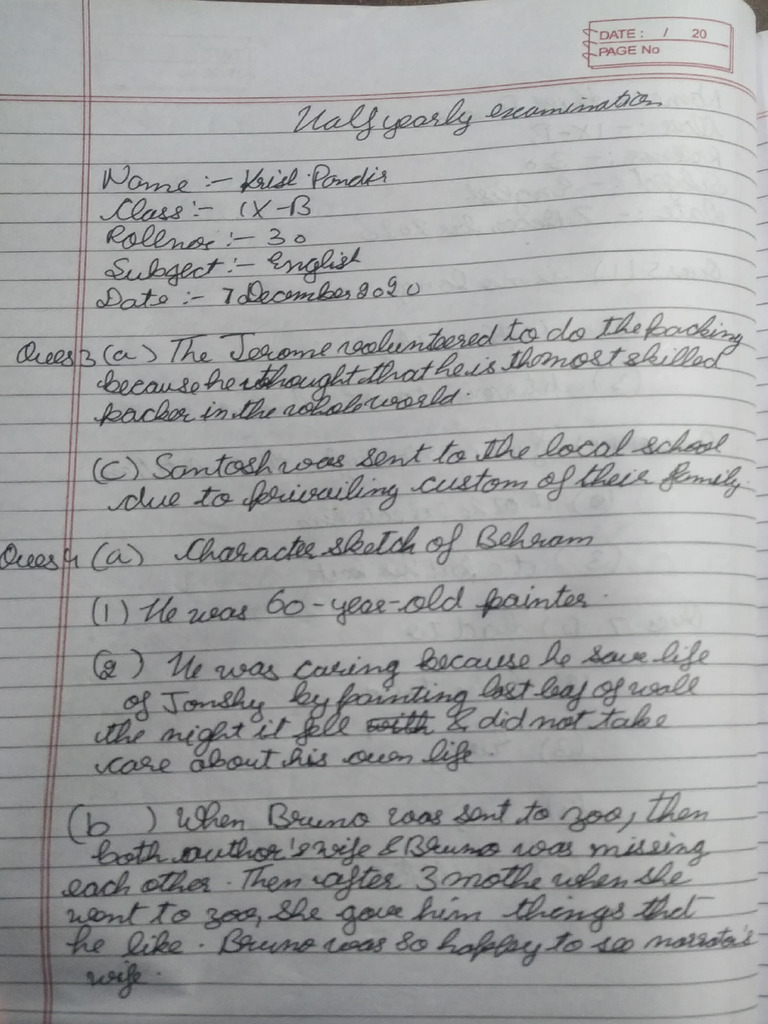 DATE : / 20
PAGE No
Half yearly examination
Name :- Krish Pandir
Class :- IX-B
Rollno :- 30
Subject :- English
Date :- 7 December 2020
Ques 3 (a) The Jerome volunteered to do the packing
because he thought that he is the most skilled
packer in the whole world.
(C) Santosh was sent to the local school
due to privailing custom of their family.
Ques 4 (a) Character sketch of Behram
(1) He was 60-year-old painter.
(2) He was caring because he save life
of Jonshy by painting last leaf of wall
the night it fell with & did not take
care about his own life.
(b) When Bruno was sent to zoo, then
both author's wife & Bruno was missing
each other. Then after 3 mothe when she
went to zoo, she gave him things that
he like. Bruno was so happey to see narrator's
wife.